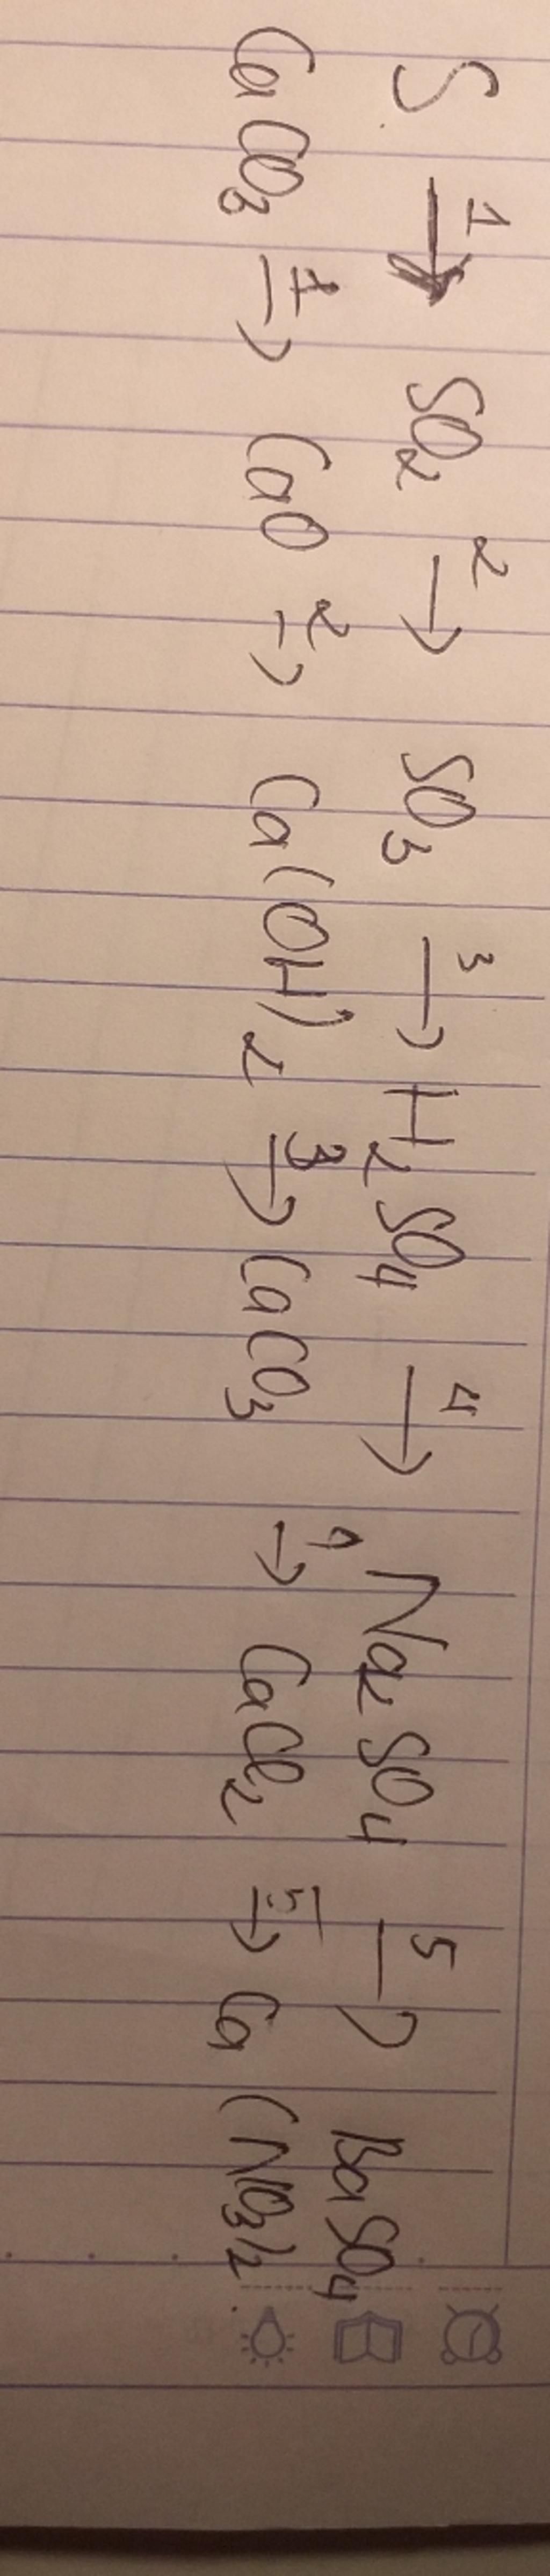 S 1→ SO₂ 2→ SO₃ 3→ H₂SO₄ 4→ Na₂SO₄ 5→ BaSO₄
CaCO₃ 1→ CaO 2→ Ca(OH)₂ 3→ CaCO₃ 4→ CaCl₂ 5→ Ca(NO₃)₂